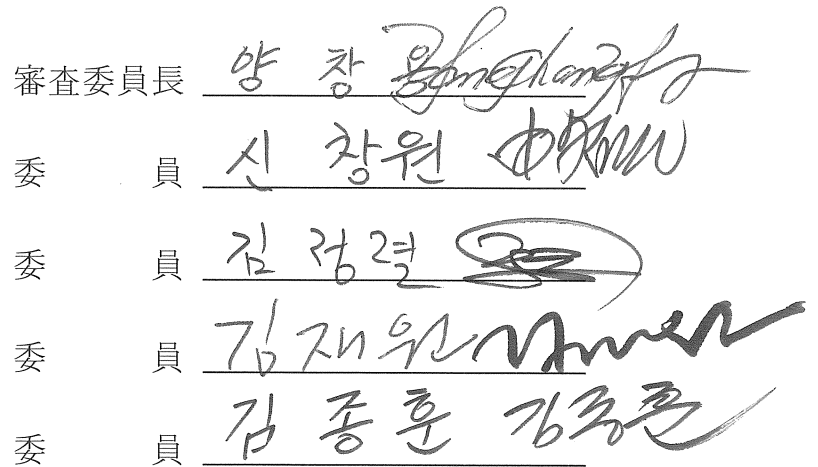 審査委員長 양 창 용
委 員 신 창원
委 員 김 정렬
委 員 김재원
委 員 김 종 훈 김종훈